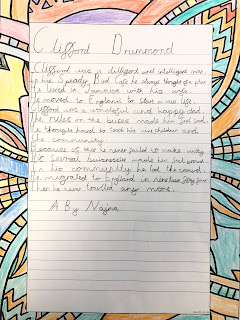 Clifford Drummond
Clifford was a diligent and intelligent man
In his Speedy Bird Cafe he always thought of a plan
He lived in Jamaica with his wife
He moved to England to start a new life
Clifford was a wonderful and happy dad
The rules on the buses made him feel sad
He thought hard to teach his nine children and
the community
Because of he never failed to make unity
His several businesses made him feel proud
In his community he led the crowd
He migrated to England in nineteen fifty four
Then he never travelled any more.
A By Najma